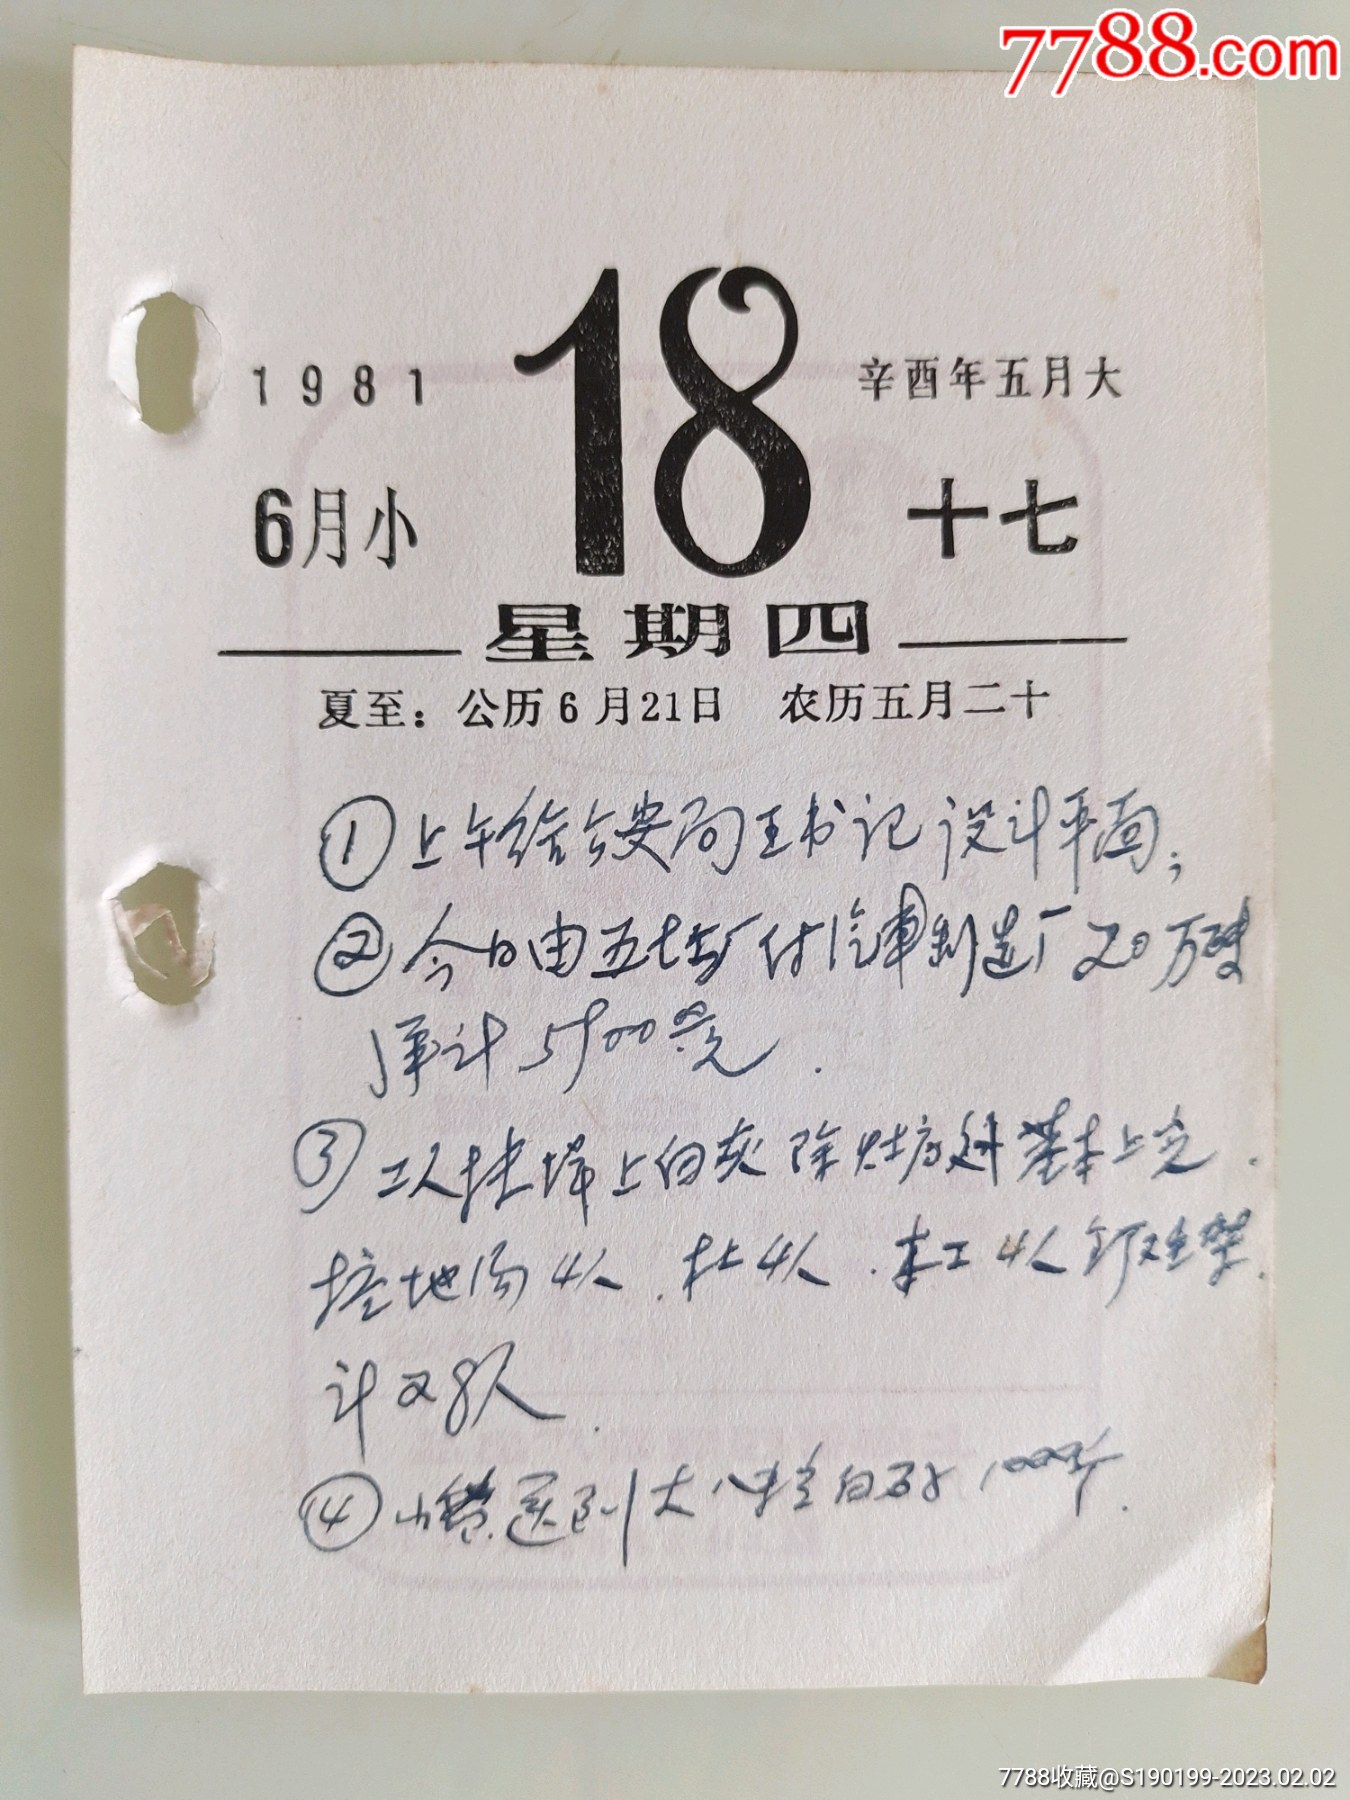 7788.com
1981
18
辛酉年五月大
6月小
十七
星期四
夏至：公历6月21日 农历五月二十
①上午给公安局王书记设计平面；
②今日由五七厂付汽車制造厂20万
计5900元.
③工人 上白灰除灶房外基本上完.
挖地沟4人.木工4人
计28人.
④ 送到大 白 1000斤.
7788收藏@S190199-2023.02.02